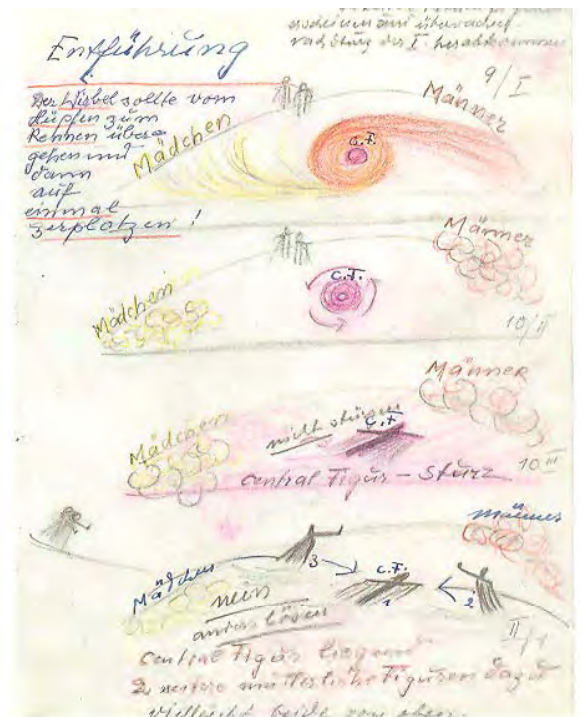 erscheinen und überwachen
nach Übung des I. herabkommen
Entführung
9/I
Der Wirbel sollte vom
Hüpfen zum
Rennen über-
gehen und
dann
auf
einmal
zerplatzen !
Mädchen
C.F.
Männer
Mädchen
C.F.
Männer
10/II
Mädchen
nicht stürzen
C.F.
Männer
10 III
Central Figur – Sturz
Männer
Mädchen
3
C.F.
1
2
nein
anders lösen
II/1
Central Figur liegend
2 weitere mütterliche Figuren dazu
vielleicht beide von oben